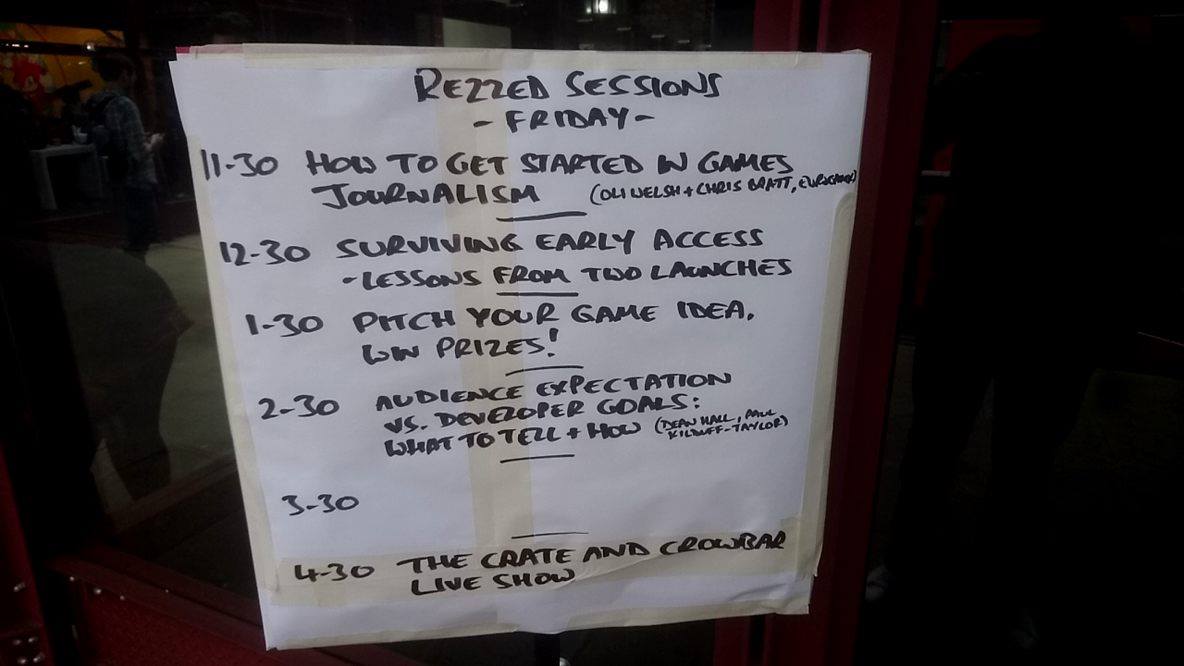 REZZED SESSIONS
- FRIDAY -
11-30 HOW TO GET STARTED IN GAMES
JOURNALISM (OLI WELSH + CHRIS BRATT, EUROGAMER)
12-30 SURVIVING EARLY ACCESS
- LESSONS FROM TWO LAUNCHES
1-30 PITCH YOUR GAME IDEA,
WIN PRIZES!
2-30 AUDIENCE EXPECTATION
VS. DEVELOPER GOALS:
WHAT TO TELL + HOW (DEAN HALL, PAUL
KILDUFF-TAYLOR)
3-30
4-30 THE CRATE AND CROWBAR
LIVE SHOW